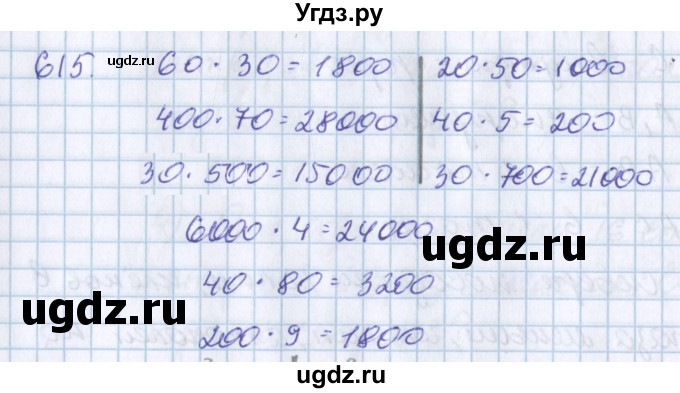 Угдз.ру
615. ugdz.ru 60 · 30 = 1800 | 20 · 50 = 1000
400 · 70 = 28000 | 40 · 5 = 200
30 · 500 = 15000 | 30 · 700 = 21000
6000 · 4 = 24000
ugdz.ru
40 · 80 = 3200
ugdz.ru
200 · 9 = 1800
ugdz.ru